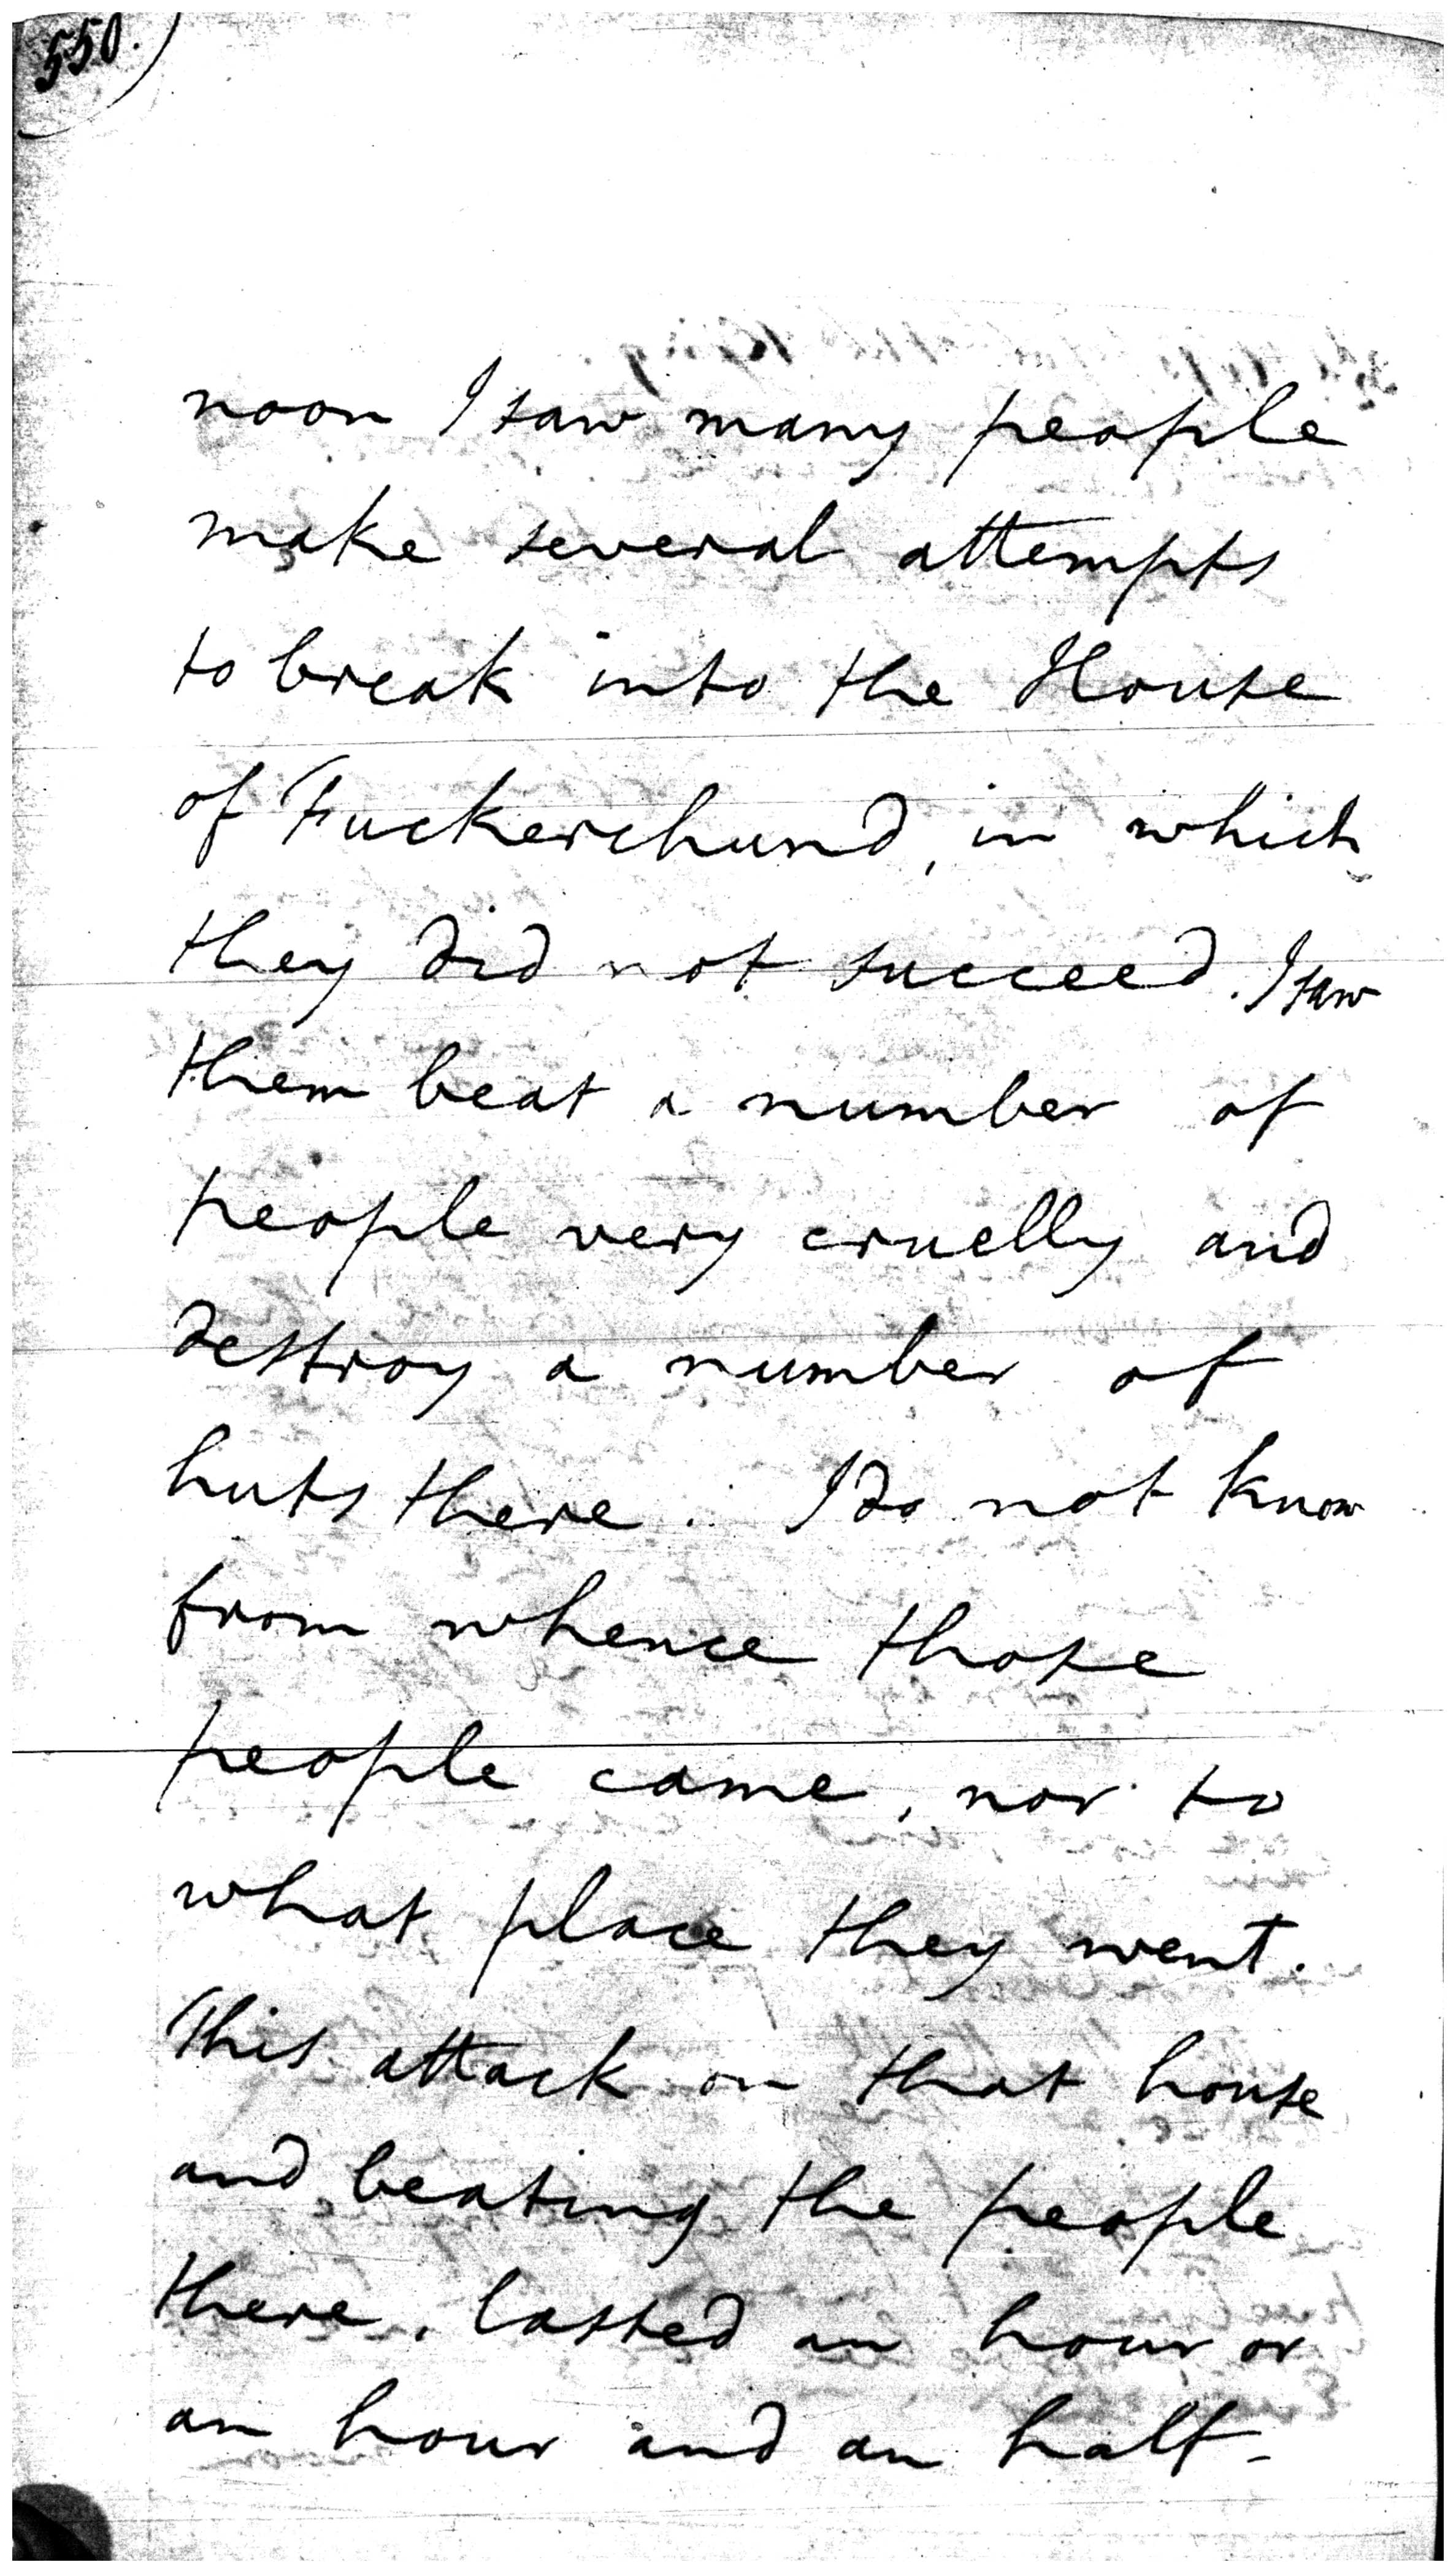 550.
noon I saw many people
make several attempts
to break into the House
of Fuckerchund, in which
they did not succeed. I saw
them beat a number of
people very cruelly and
destroy a number of
huts there. I do not know
from whence those
people came, nor to
what place they went.
This attack on that house
and beating the people
there, lasted an hour or
an hour and an half-